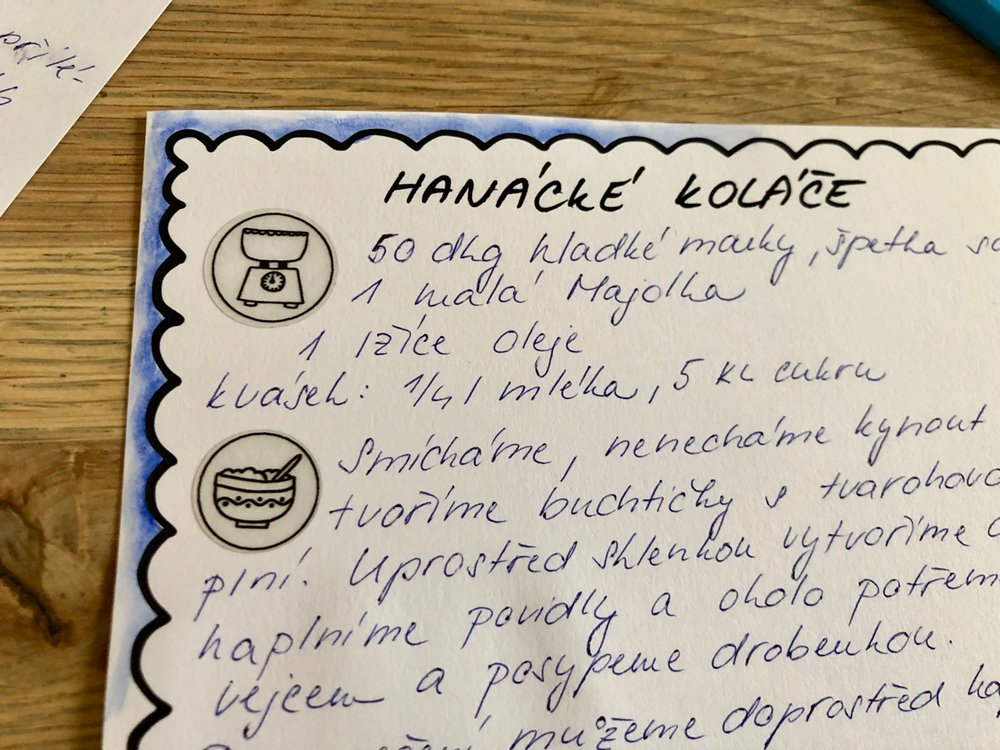 přilé-
HANÁCKÉ KOLÁČE
50 dkg hladké mouky, špetka
1 malá Majolka
1 lžíce oleje
kvásek: 1/4 l mléka, 5 KL cukru
Smícháme, nenecháme kynout
tvoříme buchtičky s tvarohovo
plní. Uprostřed sklenkou vytvoříme
naplníme povidly a okolo potřem
vejcem a posypeme drobenkou.
můžeme doprostřed